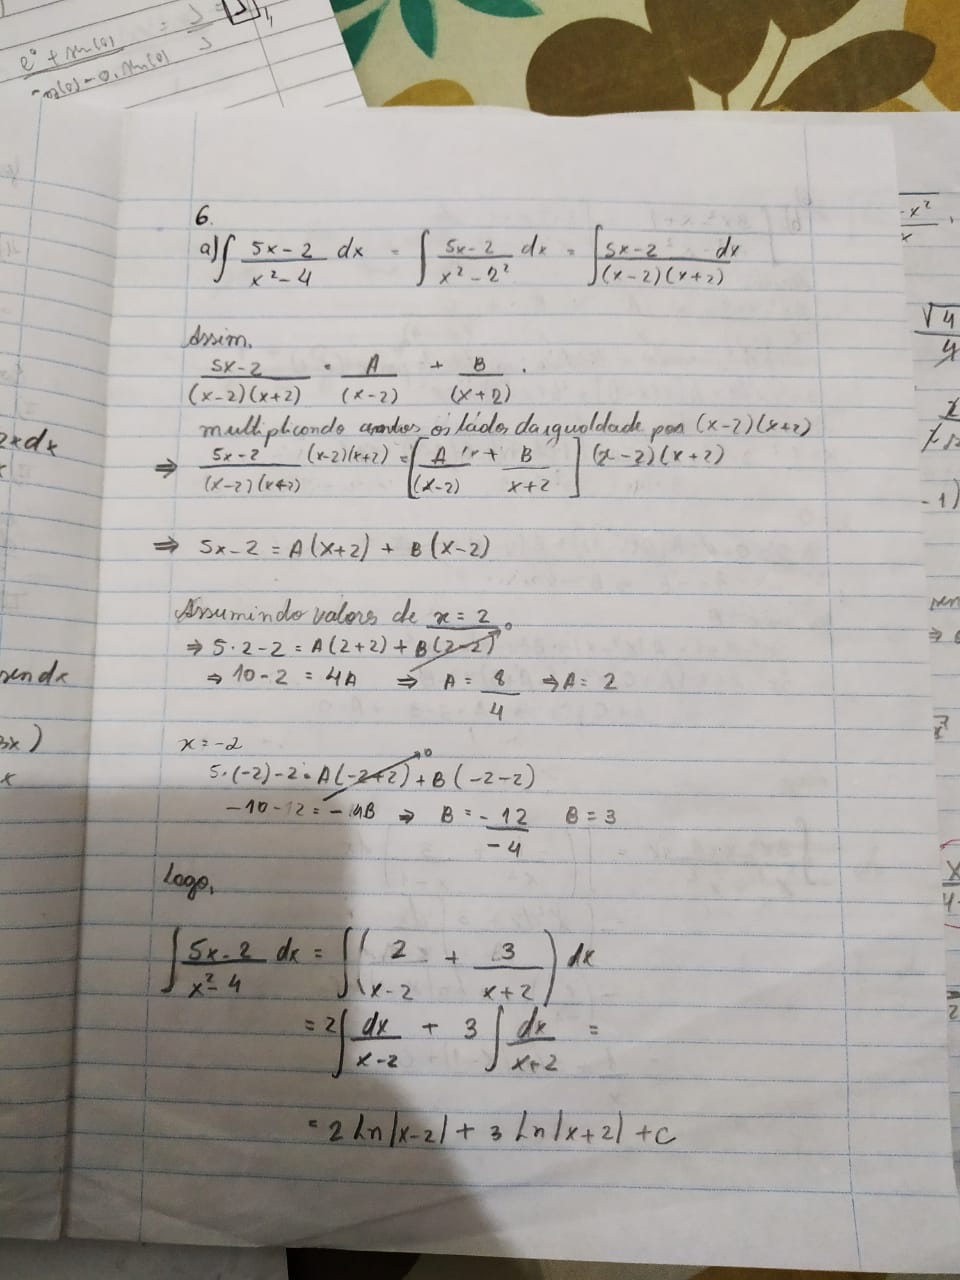 e⁰ + sen(0)
6.
a) ∫ 5x-2 / x²-4 dx = ∫ 5x-2 / x²-2² dx = ∫ 5x-2 / (x-2)(x+2) dx
Assim,
5x-2 / (x-2)(x+2) = A / (x-2) + B / (x+2) .
multiplicando ambos os lados da igualdade por (x-2)(x+2)
⇒ 5x-2 / (x-2)(x+2) (x-2)(x+2) = [ A / (x-2) + B / x+2 ] (x-2)(x+2)
⇒ 5x-2 = A(x+2) + B(x-2)
Assumindo valores de x = 2
⇒ 5·2-2 = A(2+2) + B(2-2) 0
⇒ 10-2 = 4A ⇒ A = 8 / 4 ⇒ A = 2
x = -2
5·(-2)-2 = A(-2+2) 0 + B(-2-2)
-10-12 = -4B ⇒ B = -12 / -4 B = 3
Logo,
∫ 5x-2 / x²-4 dx = ∫ ( 2 / x-2 + 3 / x+2 ) dx
= 2 ∫ dx / x-2 + 3 ∫ dx / x+2 =
= 2 Ln|x-2| + 3 Ln|x+2| + C